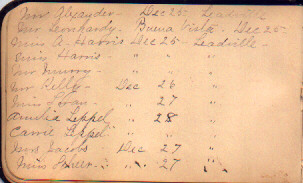 Mrs Gheyder - Dec 25 - Leadville
Mr Leonhardy - Buena Vista - Dec 25 -
Miss A. Harris Dec 25 - Leadville -
Emy Harris - " " "
Mr Murry - " " "
Mr Kelly - Dec 26 "
Miss " 27 "
Amelie Leppel " 28 "
Carrie Leppel " " "
Mrs Jacobs - Dec 27 "
Miss " 27 "